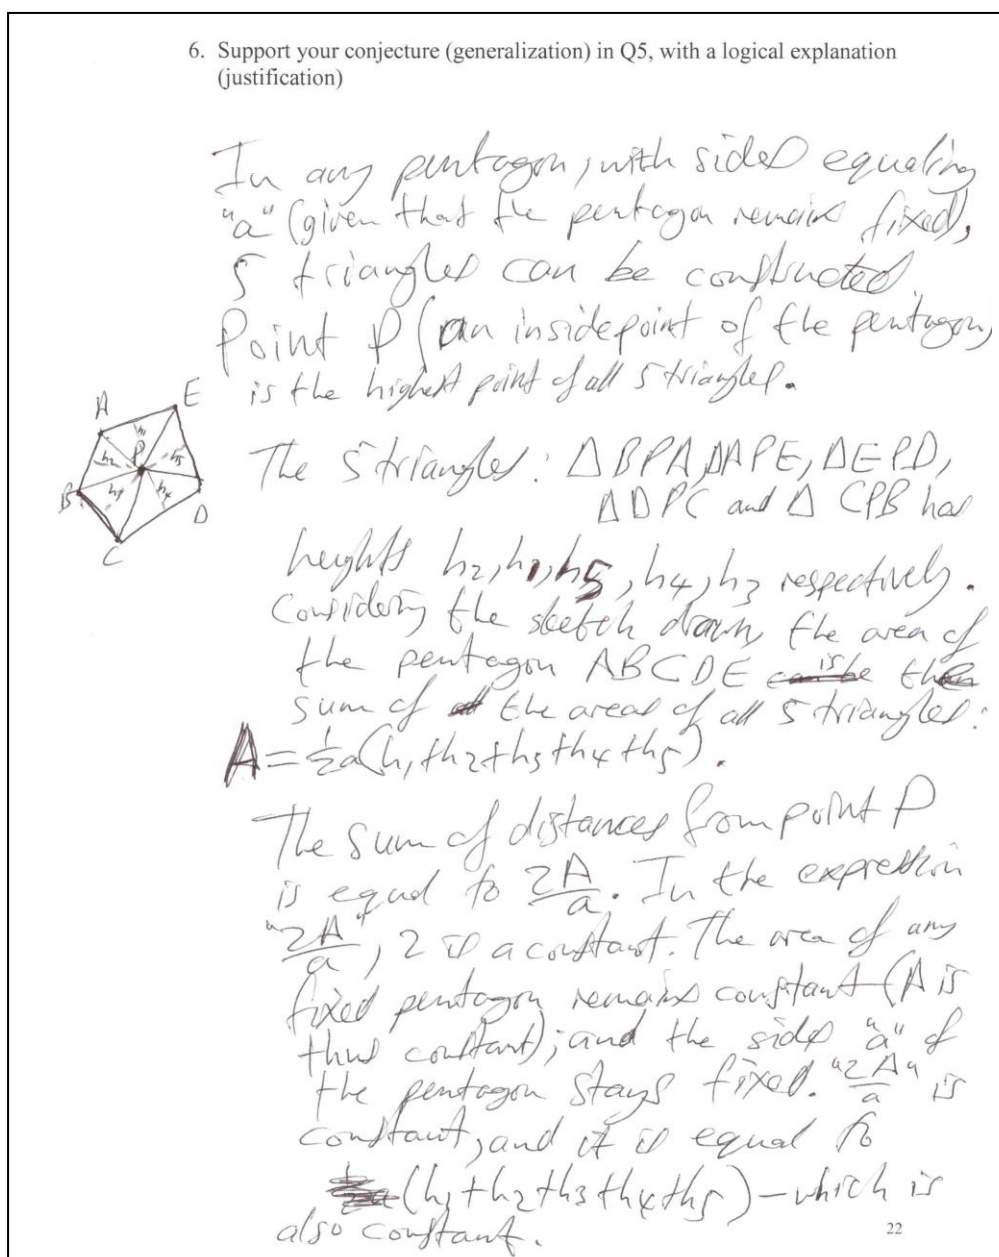 6. Support your conjecture (generalization) in Q5, with a logical explanation
(justification)
In any pentagon, with sides equaling
"a" (given that the pentagon remains fixed),
5 triangles can be constructed.
Point P (an inside point of the pentagon)
is the highest point of all 5 triangles.
A
E
h1
P
h2
h5
B
h3
h4
D
C
The 5 triangles: ΔBPA, ΔAPE, ΔEPD,
ΔDPC and Δ CPB has
heights h2, h1, h5, h4, h3 respectively.
Considering the sketch drawn, the area of
the pentagon ABCDE is the
sum of the areas of all 5 triangles:
A = ½a(h1+h2+h3+h4+h5).
The sum of distances from point P
is equal to 2A/a. In the expression
"2A/a", 2 is a constant. The area of any
fixed pentagon remains constant (A is
thus constant); and the sides "a" of
the pentagon stays fixed. "2A/a" is
constant, and it is equal to
(h1+h2+h3+h4+h5) - which is
also constant.
22